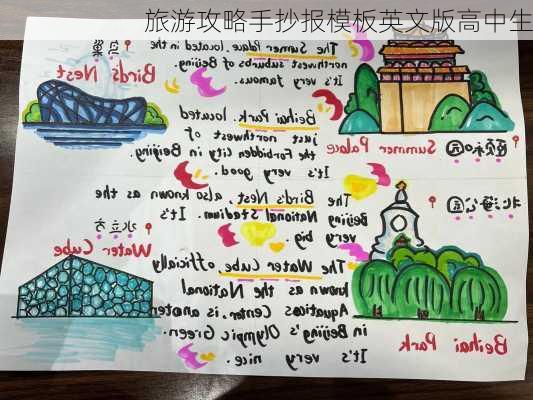 旅游攻略手抄报模板英文版高中生
颐和园
Summer Palace
The Sumer Palace. located in the
northwest suburbs of Beijing.
It's very famous.
鸟巢
Bird's Nest
Beihai Park. located
just northwest of
the Forbidden City in Beijing.
It's very good.
北海公园
Beihai Park
The Bird's Nest. also known as the
Beijing National Stadium. It's
very big.
水立方
Water Cube
The Water Cube officially
known as the National
Center, is
in Beijing's Olympic Green.
It's very nice.